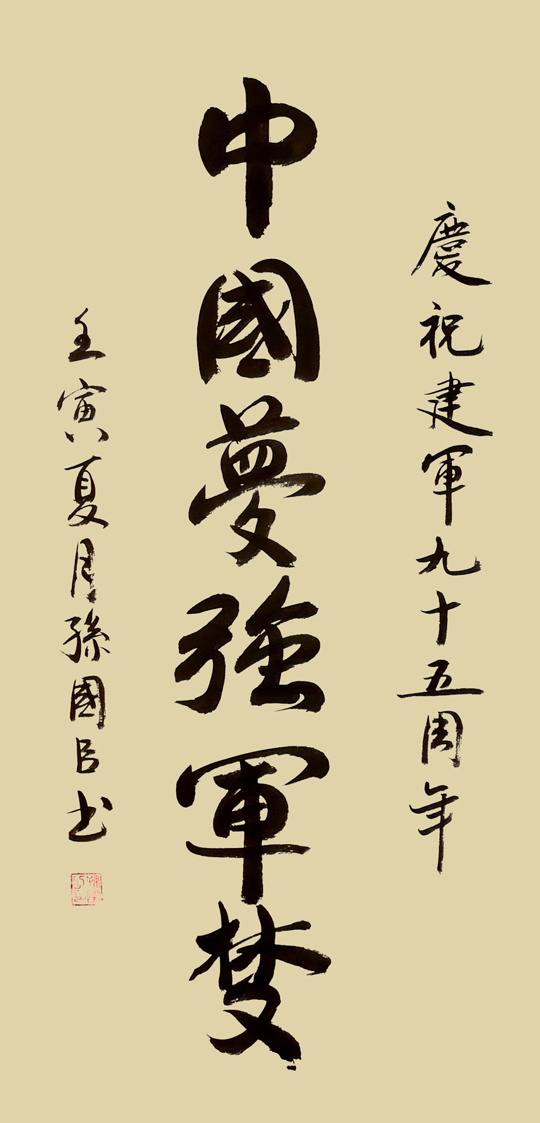 慶祝建軍九十五周年
中國夢強軍梦
壬寅夏月孫國臣书